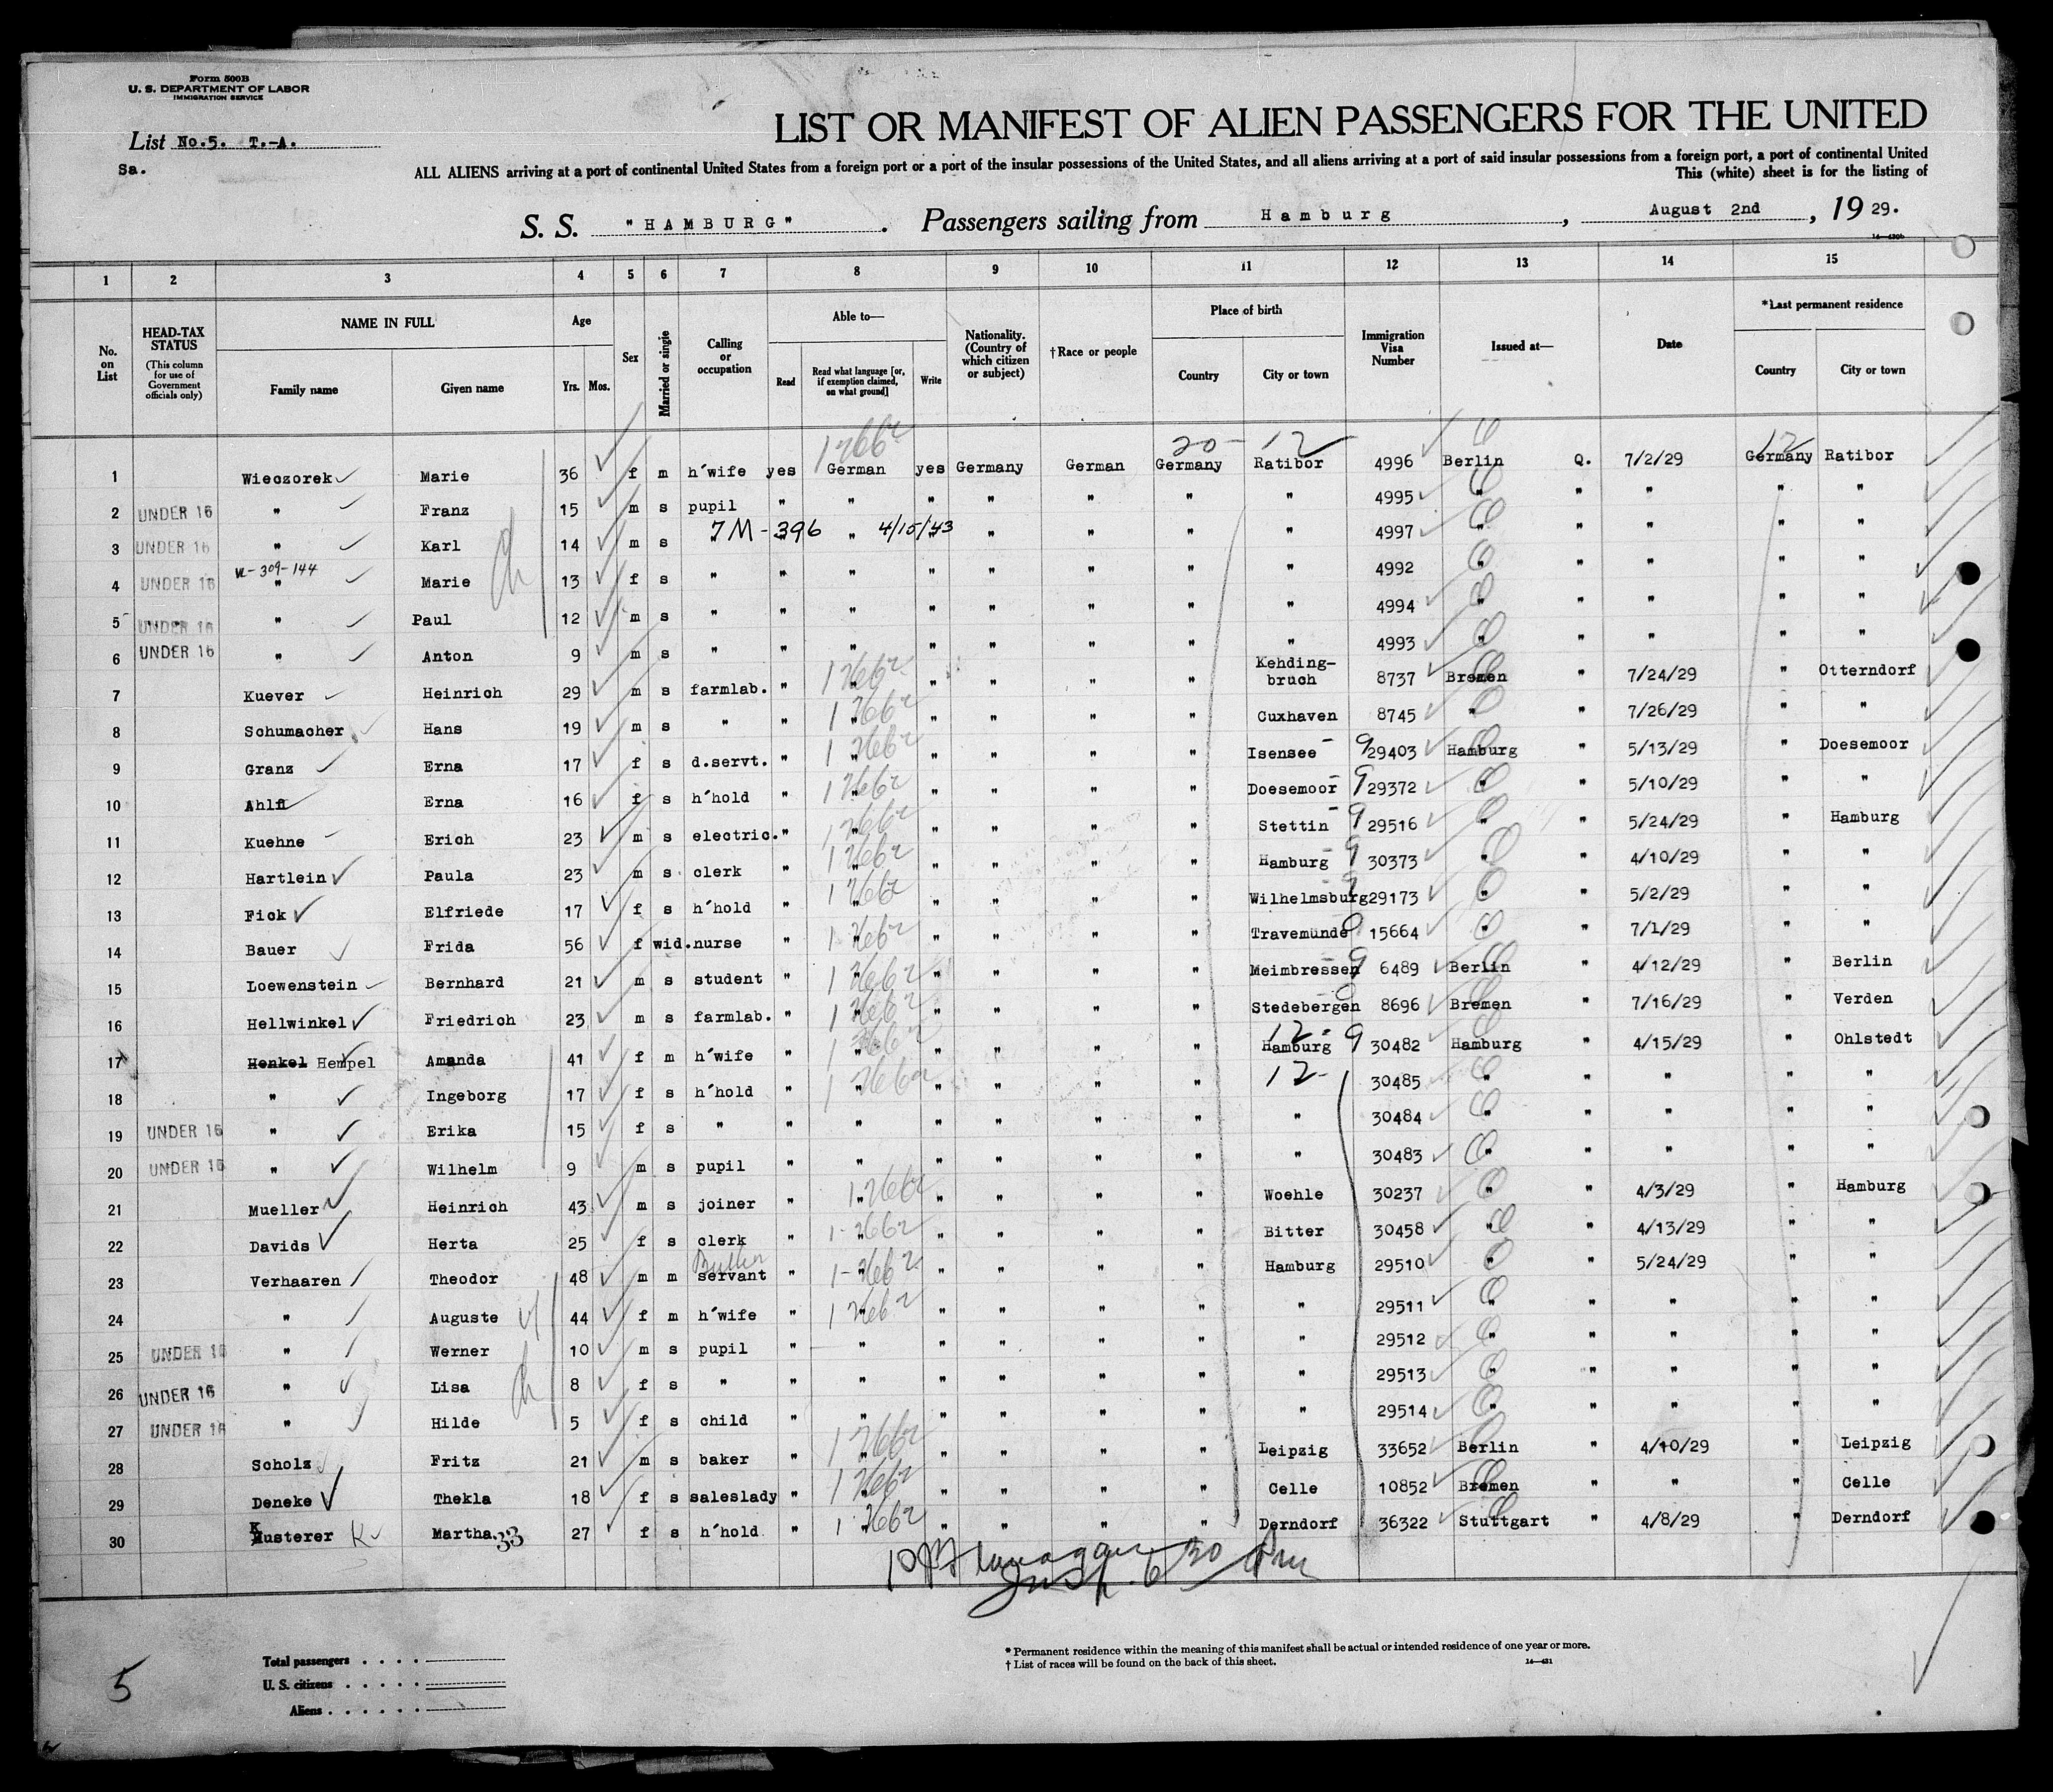 Form 500B
U. S. DEPARTMENT OF LABOR
IMMIGRATION SERVICE
List No.5. T.-A.
Sa.
LIST OR MANIFEST OF ALIEN PASSENGERS FOR THE UNITED
ALL ALIENS arriving at a port of continental United States from a foreign port or a port of the insular possessions of the United States, and all aliens arriving at a port of said insular possessions from a foreign port, a port of continental United
This (white) sheet is for the listing of
S. S. "HAMBURG" . Passengers sailing from Hamburg , August 2nd , 19 29.
14—430b
1 2 3 4 5 6 7 8 9 10 11 12 13 14 15
No. on List HEAD-TAX STATUS (This column for use of Government officials only) NAME IN FULL Family name Given name Age Yrs. Mos. Sex Married or single Calling or occupation Able to— Read Read what language [or, if exemption claimed, on what ground] Write Nationality. (Country of which citizen or subject) †Race or people Place of birth Country City or town Immigration Visa Number Issued at— Date *Last permanent residence Country City or town
20 - 12 12
1 Wieczorek Marie 36 f m h'wife yes German yes Germany German Germany Ratibor 4996 Berlin Q. 7/2/29 Germany Ratibor
2 UNDER 16 " Franz 15 m s pupil " " " " " " " 4995 " " " " "
7M-396 4/15/43
3 UNDER 16 " Karl 14 m s " " " " " " " " 4997 " " " " "
309-144
4 UNDER 16 " Marie 13 f s " " " " " " " " 4992 " " " " "
5 UNDER 16 " Paul 12 m s " " " " " " " " 4994 " " " " "
6 UNDER 16 " Anton 9 m s " " " " " " " " 4993 " " " " "
7 Kuever Heinrich 29 m s farmlab. " " " " " " Kehding-bruch 8737 Bremen " 7/24/29 " Otterndorf
8 Schumacher Hans 19 m s " " " " " " " Cuxhaven 8745 " " 7/26/29 " "
9 Granz Erna 17 f s d.servt. " " " " " " Isensee 9 29403 Hamburg " 5/13/29 " Doesemoor
10 Ahlf Erna 16 f s h'hold " " " " " " Doesemoor 9 29372 " " 5/10/29 " "
11 Kuehne Erich 23 m s electric. " " " " " " Stettin 9 29516 " " 5/24/29 " Hamburg
12 Hartlein Paula 23 m s clerk " " " " " " Hamburg 9 30373 " " 4/10/29 " "
13 Fick Elfriede 17 f s h'hold " " " " " " Wilhelmsburg 9 29173 " " 5/2/29 " "
14 Bauer Frida 56 f wid. nurse " " " " " " Travemünde 15664 " " 7/1/29 " "
15 Loewenstein Bernhard 21 m s student " " " " " " Meimbressen 9 6489 Berlin " 4/12/29 " Berlin
16 Hellwinkel Friedrich 23 m s farmlab. " " " " " " Stedebergen 8696 Bremen " 7/16/29 " Verden
12 -
17 Henkel Hempel Amanda 41 f m h'wife " " " " " " Hamburg 9 30482 Hamburg " 4/15/29 " Ohlstedt
18 " Ingeborg 17 f s h'hold " " " " " " 12- 30485 " " " " "
19 UNDER 16 " Erika 15 f s " " " " " " " " 30484 " " " " "
20 UNDER 16 " Wilhelm 9 m s pupil " " " " " " " 30483 " " " " "
21 Mueller Heinrich 43 m s joiner " " " " " " Woehle 30237 " " 4/3/29 " Hamburg
22 Davids Herta 25 f s clerk " " " " " " Bitter 30458 " " 4/13/29 " "
Butler
23 Verhaaren Theodor 48 m m servant " " " " " " Hamburg 29510 " " 5/24/29 " "
24 " Auguste 44 f m h'wife " " " " " " " 29511 " " " " "
25 UNDER 16 " Werner 10 m s pupil " " " " " " " 29512 " " " " "
26 UNDER 16 " Lisa 8 f s " " " " " " " " 29513 " " " " "
27 UNDER 16 " Hilde 5 f s child " " " " " " " 29514 " " " " "
28 Scholz Fritz 21 m s baker " " " " " " Leipzig 33652 Berlin " 4/10/29 " Leipzig
29 Deneke Thekla 18 f s saleslady " " " " " " Celle 10852 Bremen " " " Celle
30 Kusterer K Martha 33 27 f s h'hold " " " " " " Derndorf 36322 Stuttgart " 4/8/29 " Derndorf
Insp. 6 30 Pm
* Permanent residence within the meaning of this manifest shall be actual or intended residence of one year or more.
† List of races will be found on the back of this sheet.
14—431
Total passengers . . . .
U. S. citizens . . . . .
Aliens . . . . . .
5